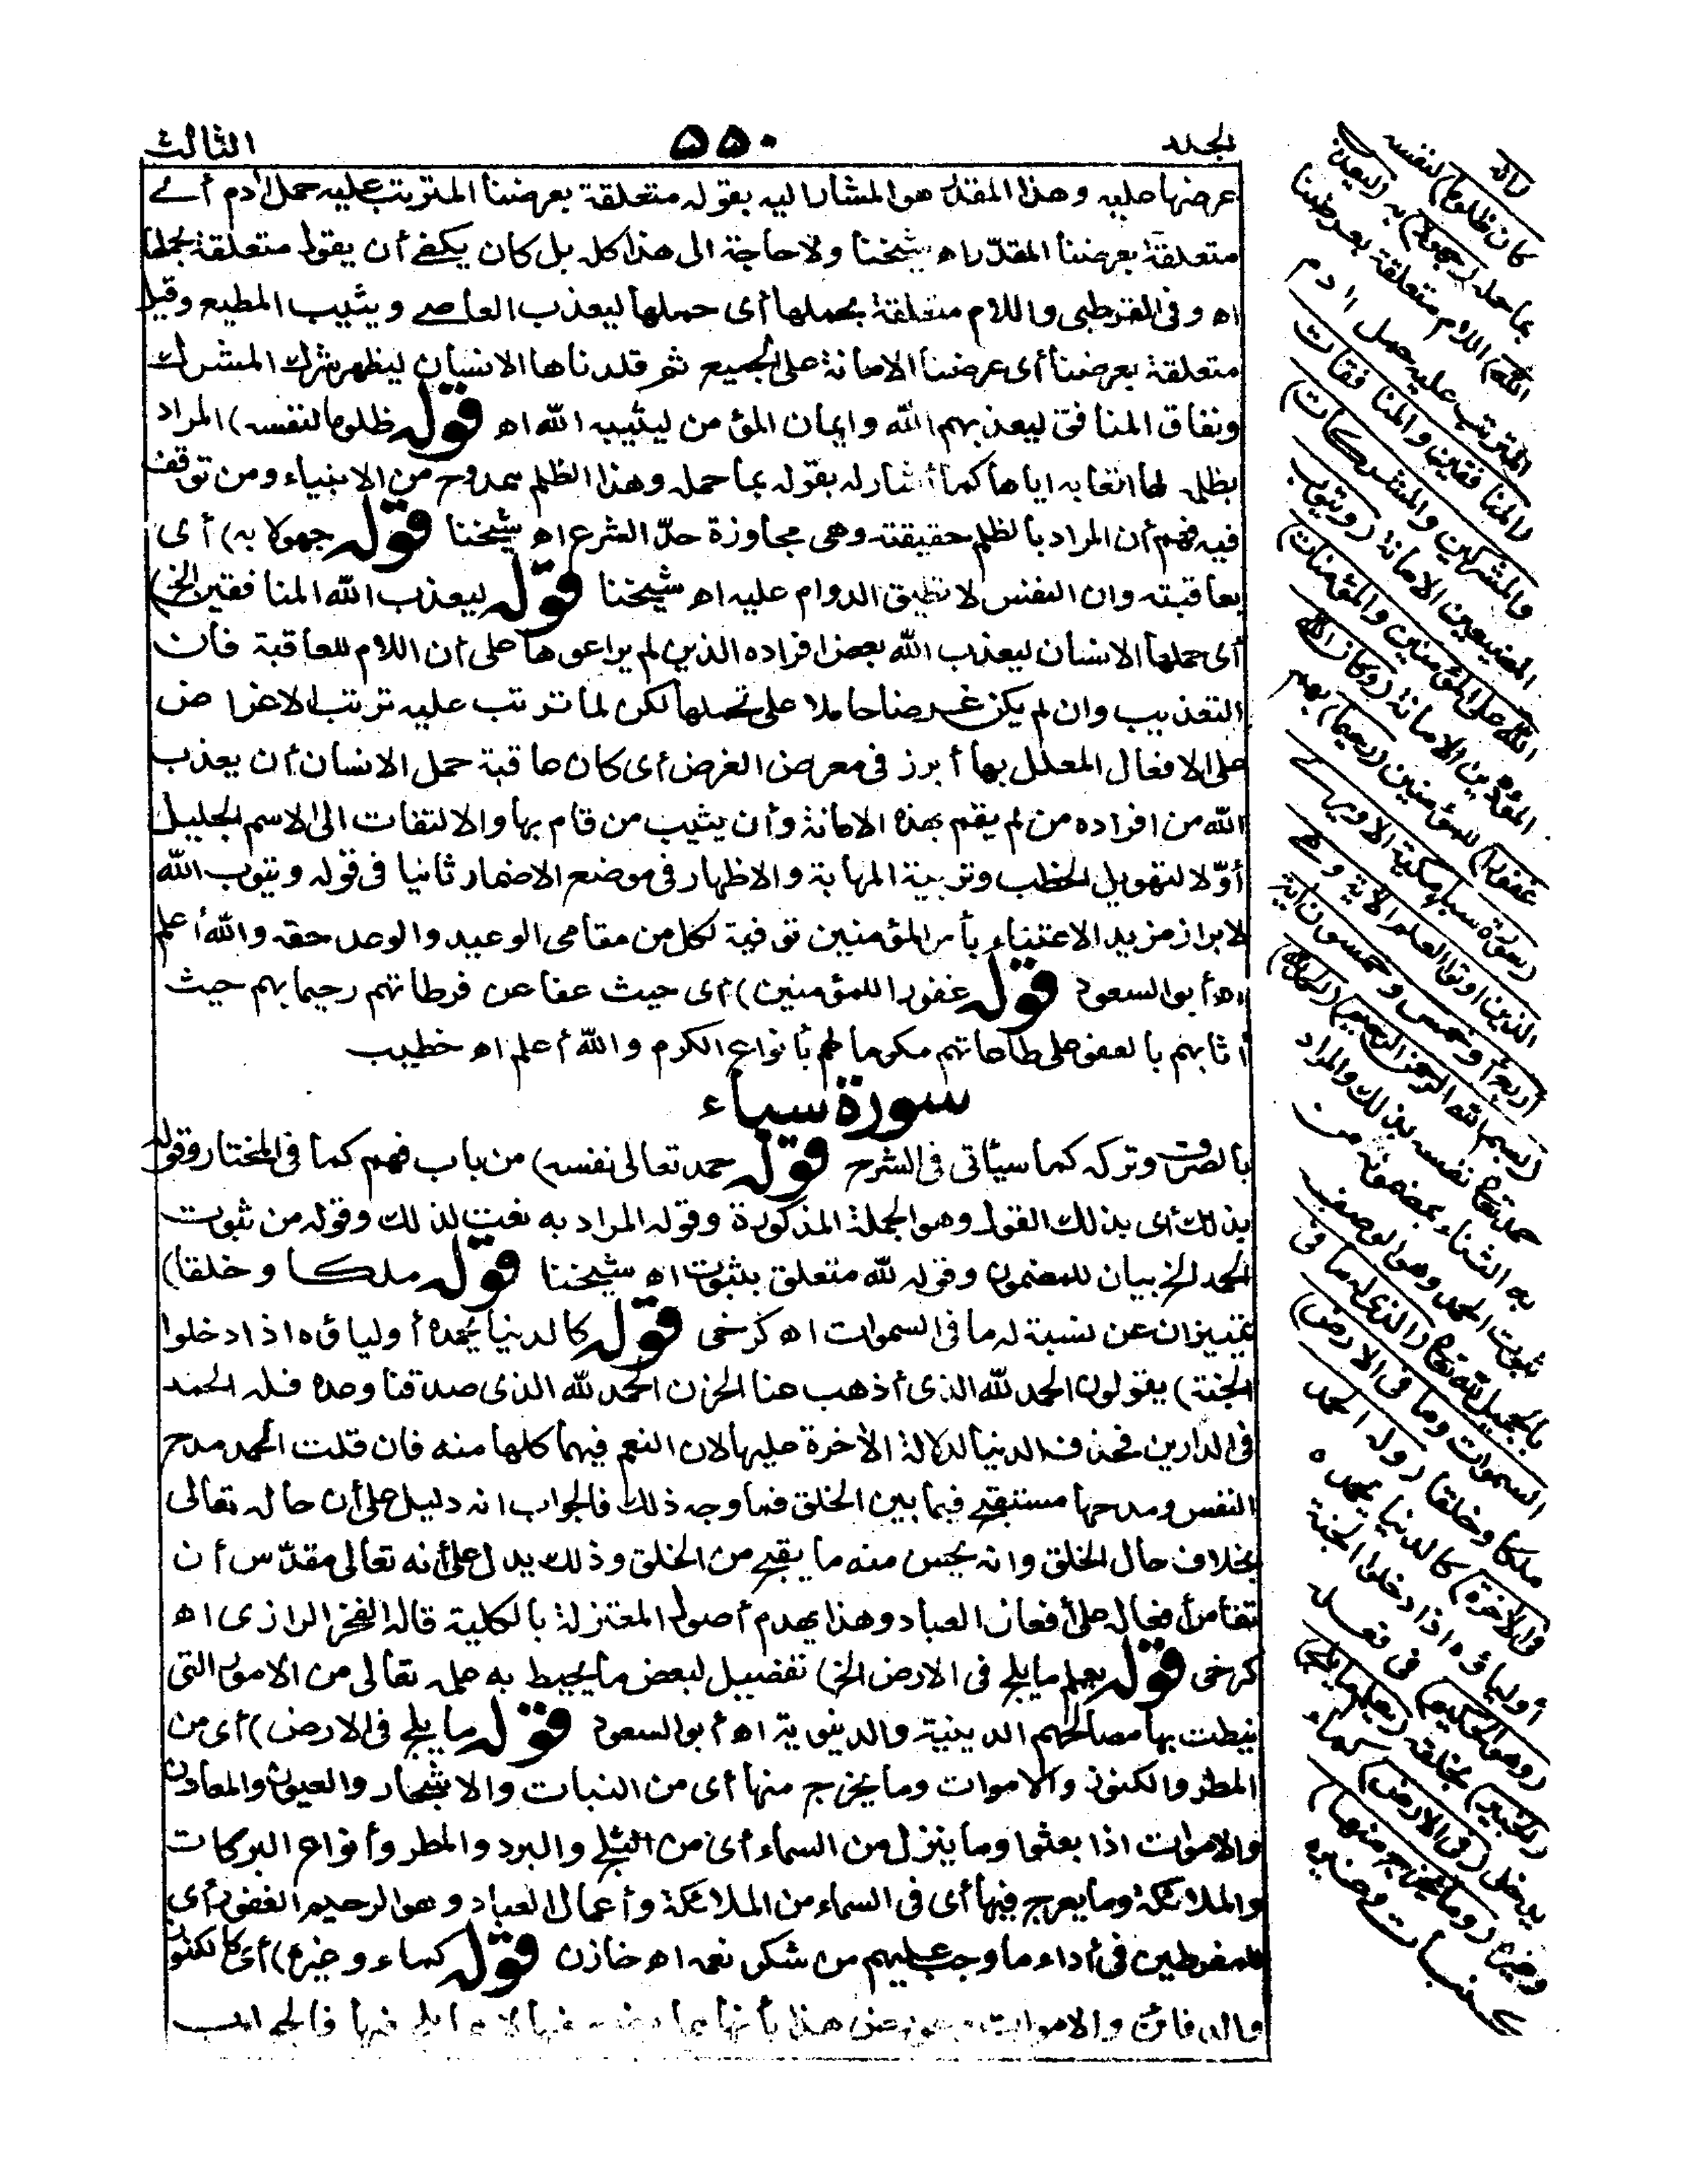 المجلد ۵۵۰ الثالث
عرضها عليه وهذا المقدر هو المشار اليه بقوله متعلقة بعرضنا المترتب عليه حمل آدم أى
متعلقة بعرضنا المقدّر اه شيخنا ولا حاجة الى هذا كله بل كان يكفى أن يقول متعلقة بحملها
اه وفى القرطبى واللام متعلقة بحملها أى حملها ليعذب العاصى ويثيب المطيع وقيل
متعلقة بعرضنا أى عرضنا الامانة على الجميع ثم قلدناها الانسان ليظهر شرك المشرك
ونفاق المنافق ليعذبهم الله وايمان المؤمن ليثيبه الله اه قوله ظلوما لنفسه) المراد
بظلمه لها اتعابه اياها كما أشار له بقوله بما حمله وهذا الظلم ممدوح من الانبياء ومن توقف
فيه فهم أن المراد بالظلم حقيقته وهى مجاوزة حدّ الشرع اه شيخنا قوله جهولا به) أى
بعاقبته وان النفس لا تطيق الدوام عليه اه شيخنا قوله ليعذب الله المنافقين الخ)
أى حملها الانسان ليعذب الله بعض افراده الذين لم يراعوها على أن اللام للعاقبة فان
التعذيب وان لم يكن غرضا حاملا على تحملها لكن لما ترتب عليه ترتب الاغراض
على الافعال المعلل بها أبرز فى معرض الغرض أى كان عاقبة حمل الانسان أن يعذب
الله من افراده من لم يقم بهذه الامانة وأن يثيب من قام بها والالتفات الى الاسم الجليل
أوّلا لتهويل الخطب وتربية المهابة والاظهار فى موضع الاضمار ثانيا فى قوله ويتوب الله
لابراز مزيد الاعتناء بأمر المؤمنين توفية لكل من مقامى الوعيد والوعد حقه والله أعلم
اه أبو السعود قوله غفورا للمؤمنين) أى حيث عفا عن فرطاتهم رحيما بهم حيث
أثابهم بالعفو على طاعاتهم مكرما لهم بأنواع الكرم والله أعلم اه خطيب
سورة سباء
بالصرف وتركه كما سيأتى فى الشرح قوله حمد تعالى نفسه) من باب فهم كما فى المختار وقوله
بذلك أى بذلك القول وهو الجملة المذكورة وقوله المراد به نعت لذلك وقوله من ثبوت
الحمد الخ بيان للمضمون وقوله لله متعلق بثبوت اه شيخنا قوله ملكا وخلقا)
تمييزان عن نسبة له ما فى السموات اه كرخى قوله كالدنيا يحمده أولياؤه اذا دخلوا
الجنة) يقولون الحمد لله الذى أذهب عنا الحزن الحمد لله الذى صدقنا وعده فله الحمد
فى الدارين فحذف الدنيا لدلالة الآخرة عليها لان النعم فيهما كلها منه فان قلت الحمد مدح
النفس ومدحها مستقبح فيما بين الخلق فما وجه ذلك فالجواب انه دليل على أن حاله تعالى
بخلاف حال الخلق وانه يحسن منه ما يقبح من الخلق وذلك يدل على أنه تعالى مقدّس أن
تقاس أفعاله على أفعال العباد وهذا يهدم أصول المعتزلة بالكلية قاله الفخر الرازى اه
كرخى قوله يعلم ما يلج فى الارض الخ) تفصيل لبعض ما يحيط به علمه تعالى من الامور التى
نيطت بها مصالحهم الدينية والدنيوية اه أبو السعود قوله ما يلج فى الارض) أى من
المطر والكنوز والاموات وما يخرج منها أى من النبات والاشجار والعيون والمعادن
والاموات اذا بعثوا وما ينزل من السماء أى من الثلج والبرد والمطر وأنواع البركات
والملائكة وما يعرج فيها أى فى السماء من الملائكة وأعمال العباد وهو الرحيم الغفور أى
للمفرطين فى أداء ما وجب عليهم من شكر نعمه اه خازن قوله كماء وغيره) أى كالكنوز
والدفائن والاموات
كان ظلوما) لنفسه
بما حمله (جهولا) به (ليعذب
الله) اللام متعلقة بعرضنا
المترتب عليه حمل آدم
(المنافقين والمنافقات
والمشركين والمشركات)
المضيعين الامانة (ويتوب
الله على المؤمنين والمؤمنات)
المؤدّين الامانة (وكان الله
غفورا) للمؤمنين (رحيما) بهم
(سورة سبا مكية الا ويرى
الذين اوتوا العلم الآية وهى
اربع أو خمس وخمسون آية)
(بسم الله الرحمن الرحيم) (الحمد لله)
حمد تعالى نفسه بذلك والمراد
به الثناء بمضمونه من
ثبوت الحمد وهو الوصف
بالجميل لله تعالى (الذى له ما فى
السموات وما فى الارض)
ملكا وخلقا (وله الحمد
فى الآخرة) كالدنيا يحمده
أولياؤه اذا دخلوا الجنة
(وهو الحكيم) فى فعله
(الخبير) بخلقه (يعلم ما يلج)
يدخل (فى الارض) كماء
وغيره (وما يخرج منها)
كنبات وغيره